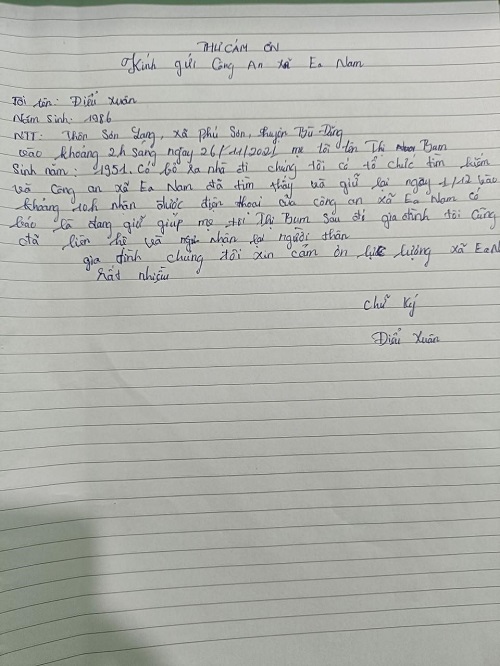 THƯ CÁM ƠN
Kính gửi Công An xã Ea Nam
Tôi tên: Điểu Xuân
Năm Sinh: 1986
NTT: Thôn Sơn Lang, xã phú Sơn, huyện Bù Đăng
vào khoảng 2h Sáng ngày 26/11/2021 mẹ tôi tên Thị Bum
Sinh năm: 1951. Có bỏ ra nhà đi chúng tôi có tổ chức tìm kiếm
và Công an xã Ea Nam đã tìm thấy và giữ lại ngày 1/12 vào
khoảng 10h nhận được điện thoại của công an xã Ea Nam có
báo là đang giữ giúp mẹ tôi Thị Bum Sau đó gia đình tôi Cũng
đã liên hệ và nhận lại người thân
gia đình chúng tôi xin cảm ơn lực lượng xã Ea N
Rất nhiều
chữ Ký
Điểu Xuân